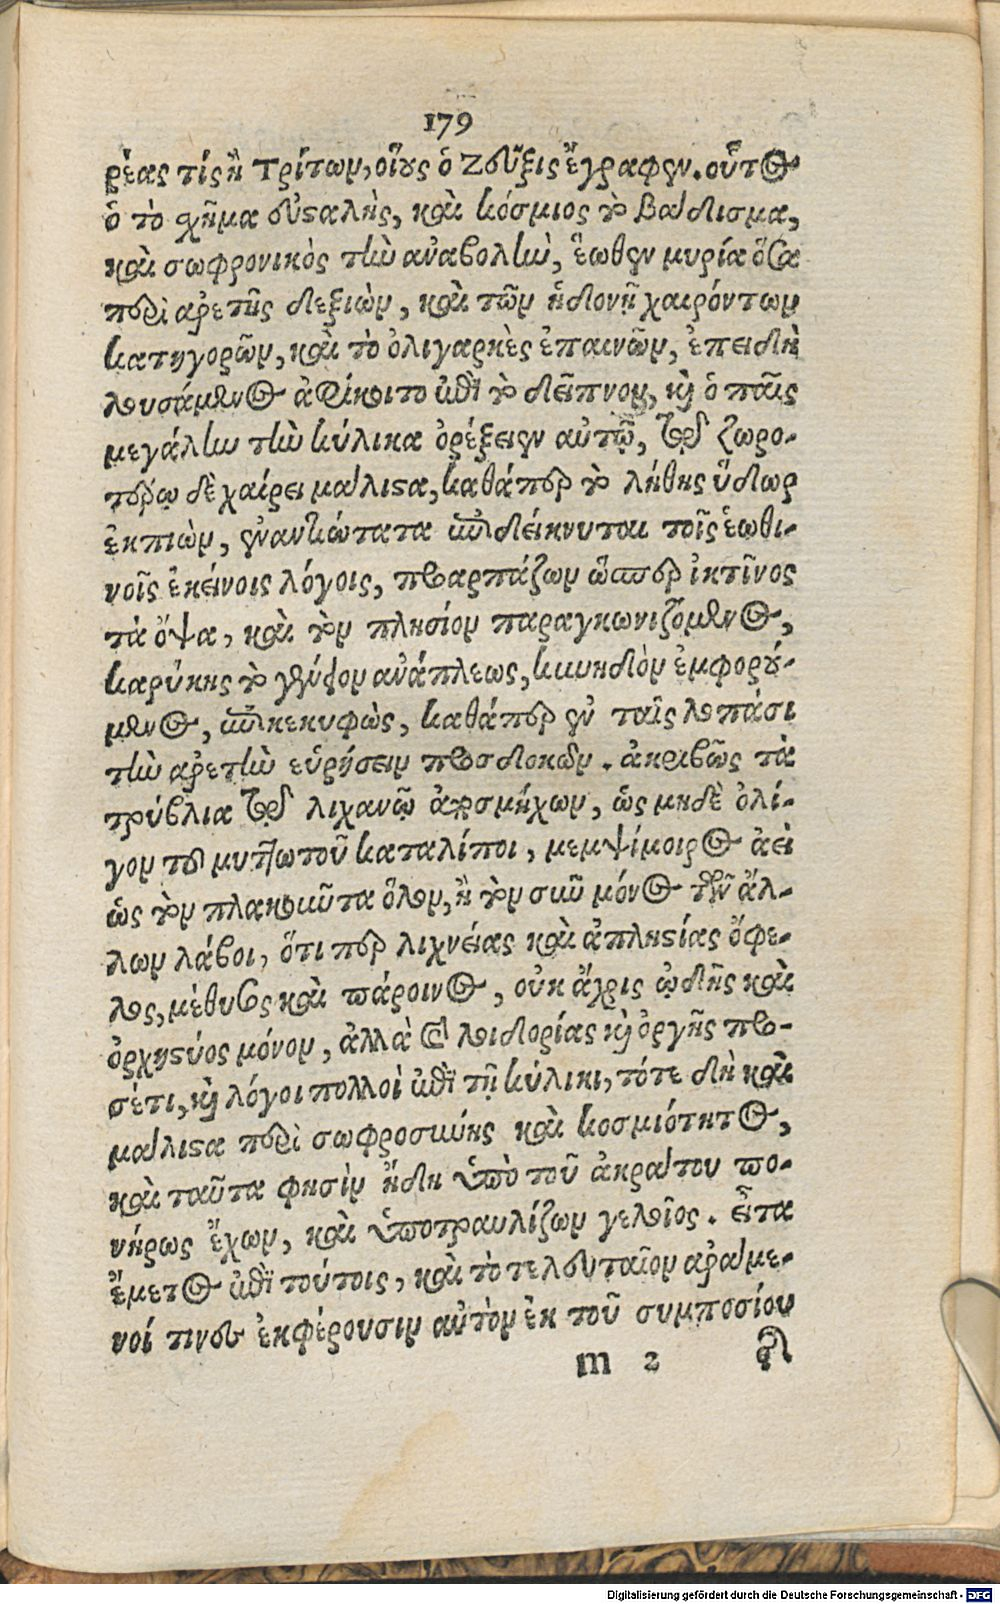 179
ρέας τίς ἢ Τρίτων, οἵους ὁ Ζεῦξις ἔγραψεν. οὗτος
ὁ τὸ σχῆμα εὐσταλὴς, καὶ κόσμιος τὸ βάδισμα,
καὶ σωφρονικὸς τὴν ἀναβολὴν, ἕωθεν μυρία ὅσα
περὶ ἀρετῆς διεξιὼν, καὶ τῶν ἡδονῇ χαιρόντων
κατηγορῶν, καὶ τὸ ὀλιγαρκὲς ἐπαινῶν, ἐπειδὴ
λουσάμενος ἀφίκοιτο ἐπὶ τὸ δεῖπνον, καὶ ὁ παῖς
μεγάλην τὴν κύλικα ὀρέξειεν αὐτῷ, τῷ ζωρο-
τέρῳ δὲ χαίρει μάλιστα, καθάπερ τὸ λήθης ὕδωρ
ἐκπιὼν, ἐναντιώτατα ἐπιδείκνυται τοῖς ἑωθι-
νοῖς ἐκείνοις λόγοις, προαρπάζων ὥσπερ ἰκτῖνος
τὰ ὄψα, καὶ τὸν πλησίον παραγκωνιζόμενος,
καρύκης τὸ γένειον ἀνάπλεως, κυνηδὸν ἐμφορού-
μενος, ἐπικεκυφὼς, καθάπερ ἐν ταῖς λοπάσι
τὴν ἀρετὴν εὑρήσειν προσδοκῶν. ἀκριβῶς τὰ
τρύβλια τῷ λιχανῷ ἀποσμήχων, ὡς μηδὲ ὀλί-
γον τοῦ μυττωτοῦ καταλίποι, μεμψίμοιρος ἀεὶ
ὡς τὸν πλακοῦντα ὅλον, ἢ τὸν σῦν μόνος τῶν ἄλ-
λων λάβοι, ὅτι περ λιχνείας καὶ ἀπληστίας ὄφε-
λος, μέθυσος καὶ πάροινος, οὐκ ἄχρις ᾠδῆς καὶ
ὀρχηστύος μόνον, ἀλλὰ καὶ λοιδορίας καὶ ὀργῆς προ-
σέτι, καὶ λόγοι πολλοὶ ἐπὶ τῇ κύλικι, τότε δὴ καὶ
μάλιστα περὶ σωφροσύνης καὶ κοσμιότητος,
καὶ ταῦτα φησὶν ἤδη ὑπὸ τοῦ ἀκράτου πο-
νήρως ἔχων, καὶ ὑποτραυλίζων γελοῖος. εἶτα
ἔμετος ἐπὶ τούτοις, καὶ τὸ τελευταῖον ἀράμε-
νοί τινες ἐκφέρουσιν αὐτὸν ἐκ τοῦ συμποσίου
m 2 τῇ
Digitalisierung gefördert durch die Deutsche Forschungsgemeinschaft - DFG